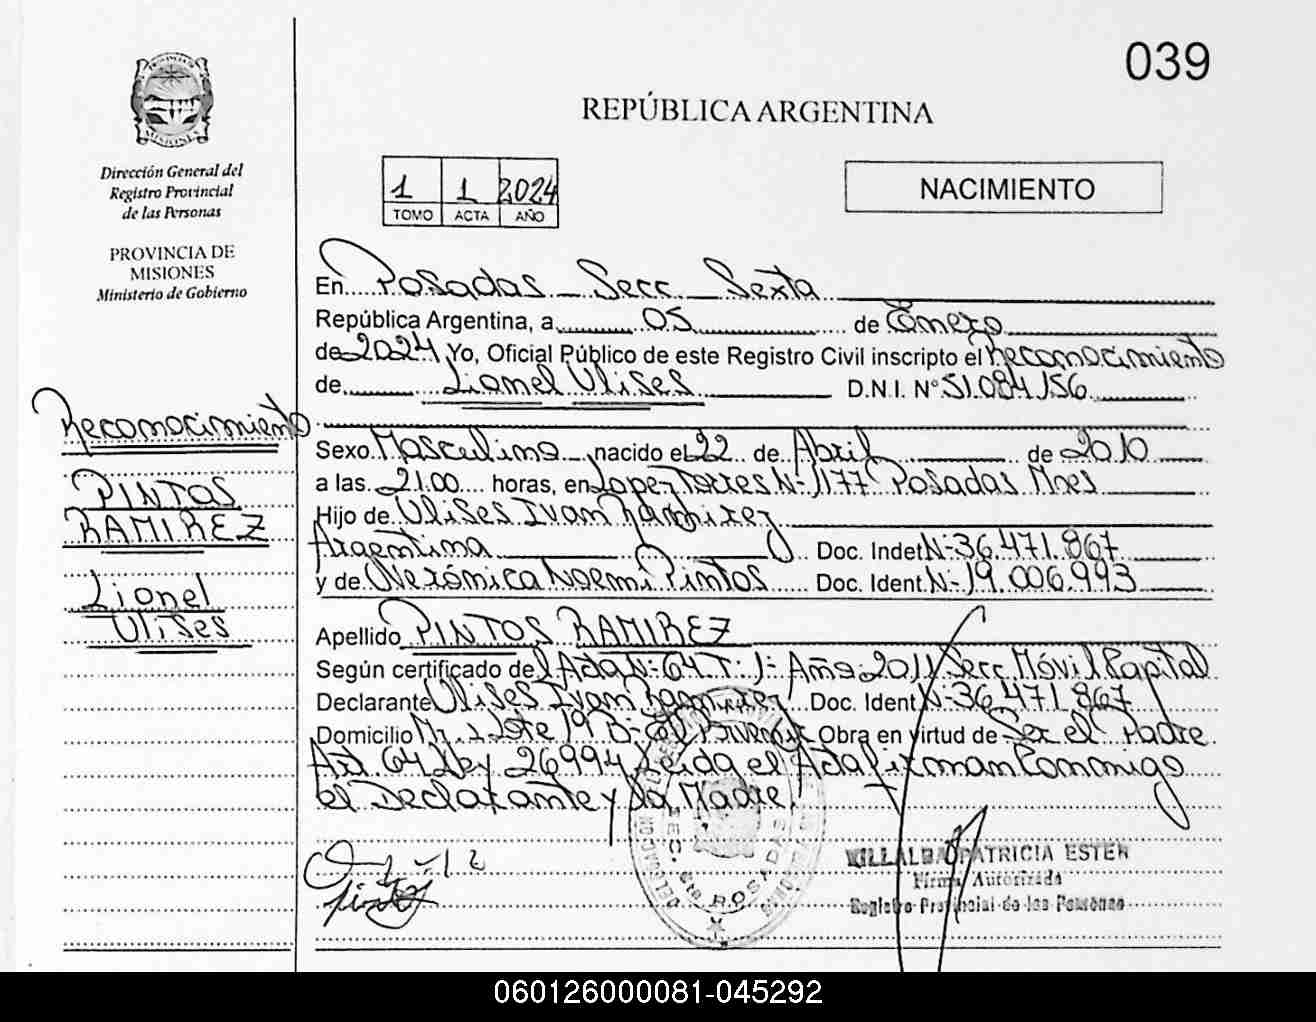 039
PROVINCIA
MISIONES
REPÚBLICA ARGENTINA
Dirección General del
Registro Provincial
de las Personas
PROVINCIA DE
MISIONES
Ministerio de Gobierno
1 1 2024
TOMO ACTA AÑO
NACIMIENTO
En Posadas Secc Sexta
República Argentina, a 05 de Enero
de 2024 Yo, Oficial Público de este Registro Civil inscripto el Reconocimiento
de Lionel Ulises D.N.I. Nº 51.084.156
Reconocimiento
PINTOS
RAMIREZ
Lionel
Ulises
Sexo Masculino nacido el 22 de Abril de 2010
a las 21.00 horas, en Lopez Torres Nº 1177 Posadas Mnes
Hijo de Ulises Ivan Ramirez
Argentina Doc. Indet Nº 36.471.867
y de Verónica Noemi Pintos Doc. Ident Nº 19.006.993
Apellido PINTOS RAMIREZ
Según certificado del Acta Nº 64 T: 1º Año 2011 Secc Móvil Capital
Declarante Ulises Ivan Ramirez Doc. Ident Nº 36.471.867
Domicilio Mz Lote 19 Bº Obra en virtud de Ser el Padre
Art 64 Ley 26994 Leida el Acta firman Conmigo
el Declarante y la Madre.
VILLALBA PATRICIA ESTER
Firma Autorizada
Registro Provincial de las Personas
060126000081-045292